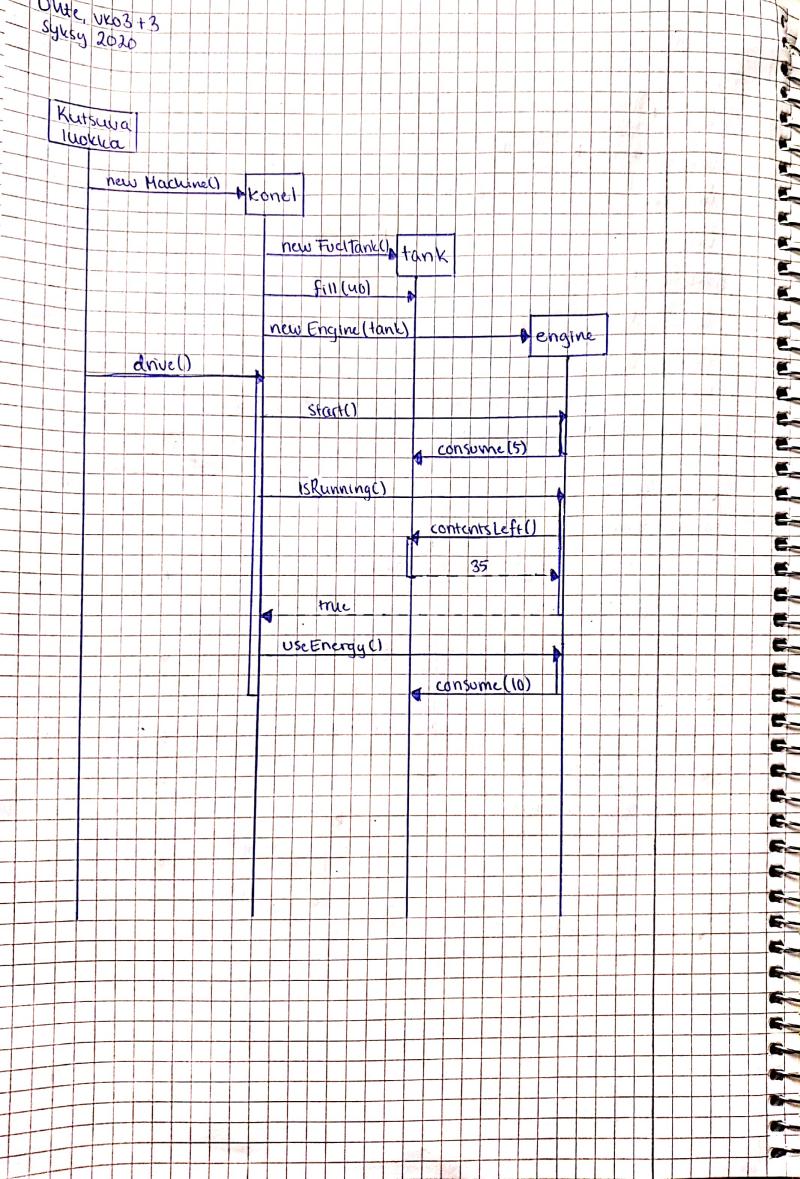 Ohte, vko3+3
syksy 2020
Kutsuva
luokka
new Machine()
kone1
new FuelTank()
tank
fill(40)
new Engine(tank)
engine
drive()
start()
consume(5)
isRunning()
contentsLeft()
35
true
useEnergy()
consume(10)